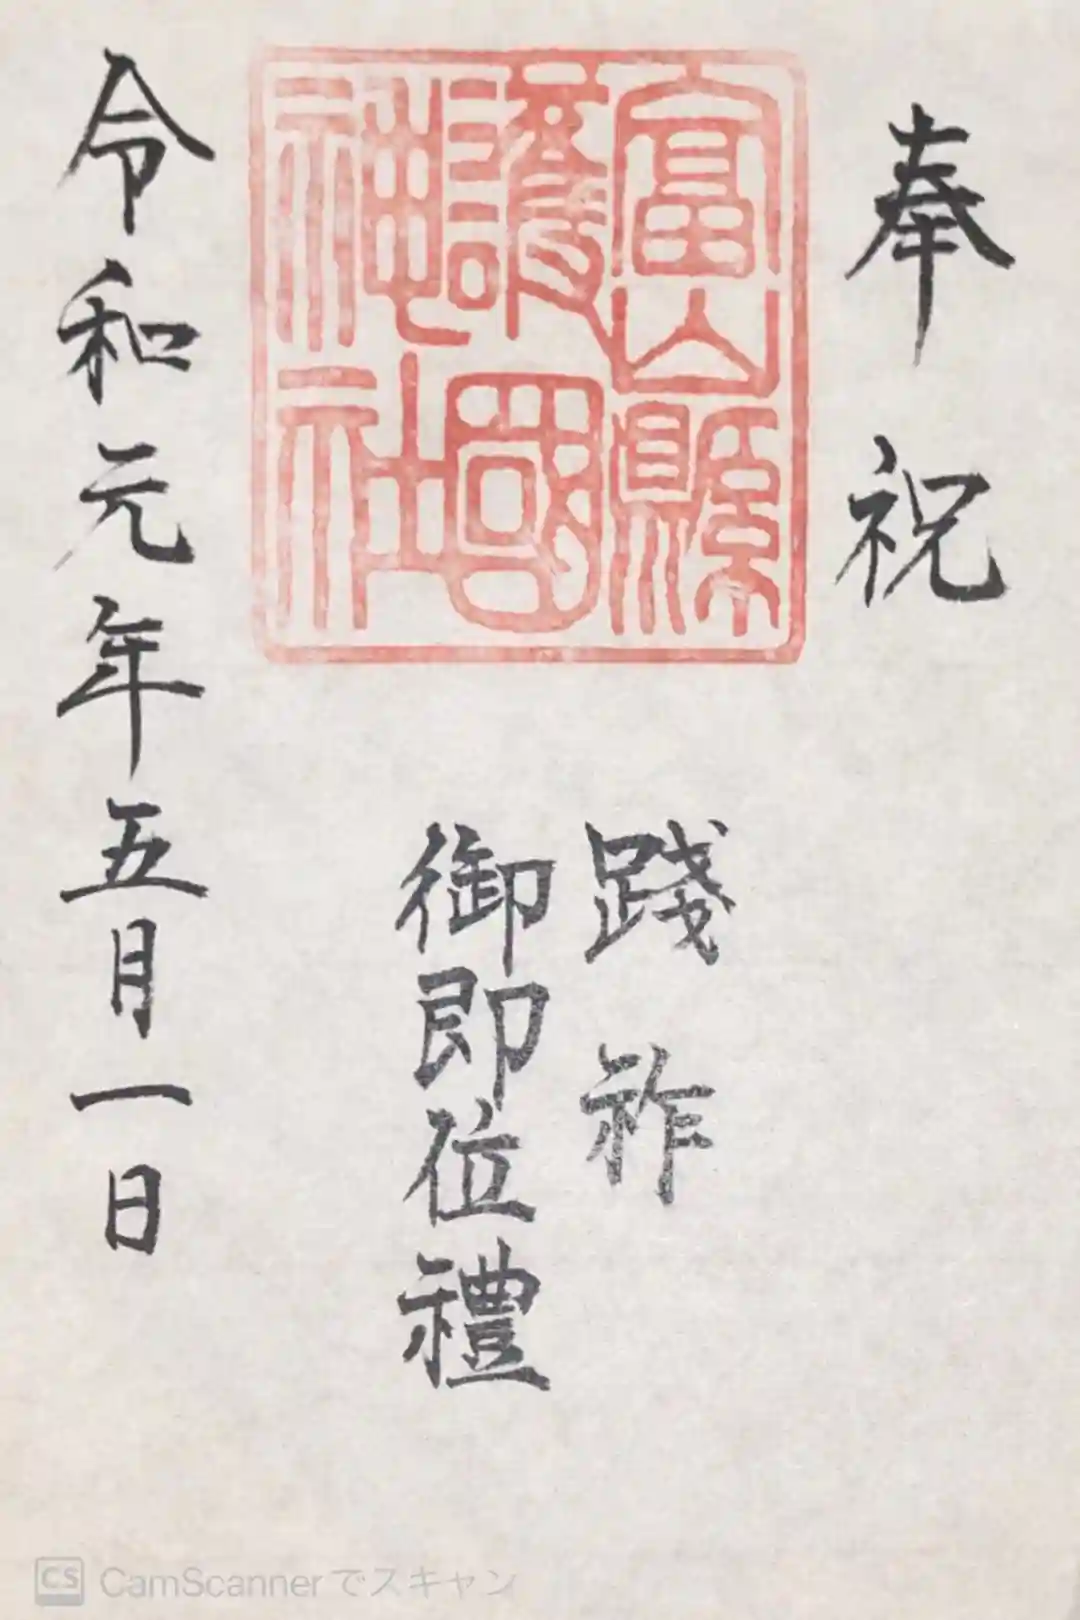 奉祝
富山縣
護國
神社
踐祚
御即位禮
令和元年五月一日
CS CamScannerでスキャン